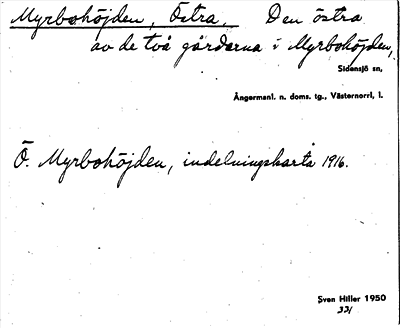 Myrbohöjden, Östra, Den östra
av de två gårdarna i Myrbohöjden,
Sidensjö sn,
Ångermanl. n. doms. tg., Västernorrl, l.
Ö. Myrbohöjden, indelningskarta 1916.
Sven Hiller 1950
331